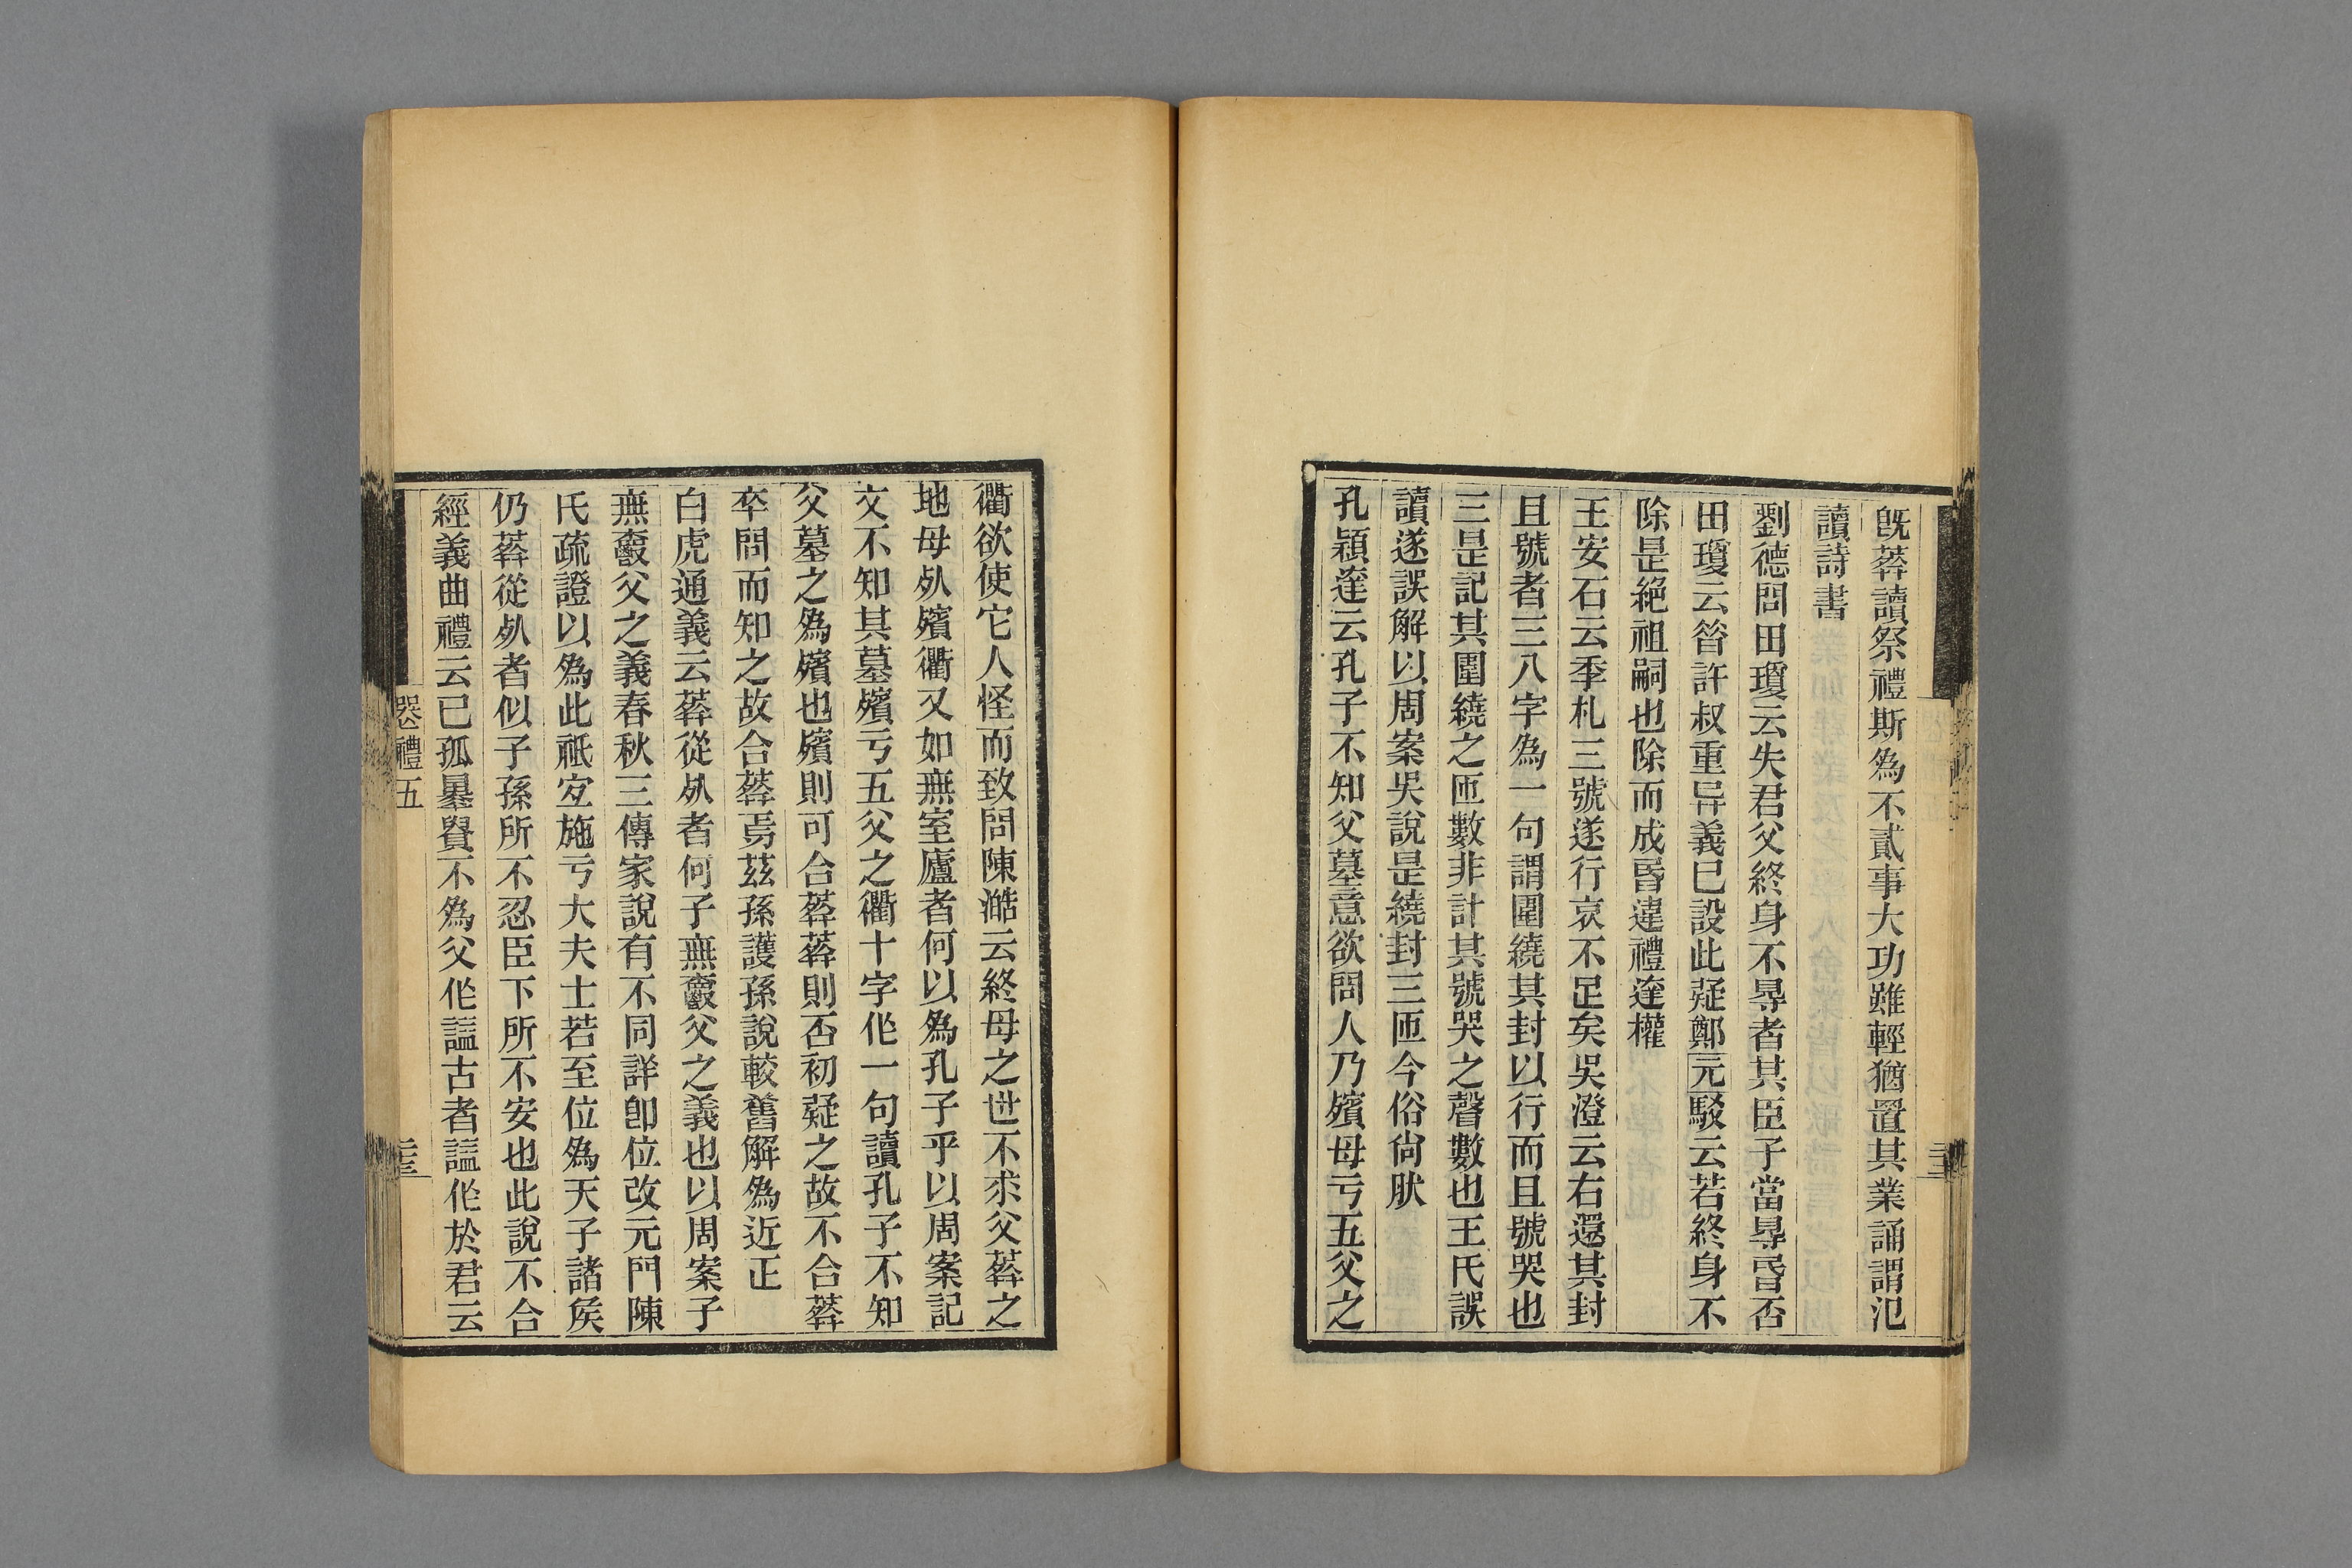 旣葬讀祭禮斯為不貳事大功雖輕猶置其業誦謂氾
讀詩書
劉德問田瓊云失君父終身不㝵者其臣子當㝵昏否
田瓊云答許叔重异義已設此疑鄭元駁云若終身不
除是絕祖嗣也除而成昏違禮達權
王安石云季札三號遂行哀不足矣吳澄云右還其封
且號者三八字為一句謂圍繞其封以行而且號哭也
三是記其圍繞之匝數非計其號哭之聲數也王氏誤
讀遂誤解以周案吳說是繞封三匝今俗尙肰
孔穎達云孔子不知父墓意欲問人乃殯母亏五父之
衢欲使它人怪而致問陳澔云終母之世不求父葬之
地母㱙殯衢又如無室廬者何以為孔子乎以周案記
文不知其墓殯亏五父之衢十字作一句讀孔子不知
父墓之為殯也殯則可合葬葬則否初疑之故不合葬
卒問而知之故合葬焉茲孫護孫說較舊解為近正
白虎通義云葬從㱙者何子無爵父之義也以周案子
無爵父之義春秋三傳家說有不同詳卽位改元門陳
氏疏證以為此祇宐施亏大夫士若至位為天子諸矦
仍葬從㱙者似子孫所不忍臣下所不安也此說不合
經義曲禮云已孤㬥貴不為父作謚古者謚作於君云
喪禮五